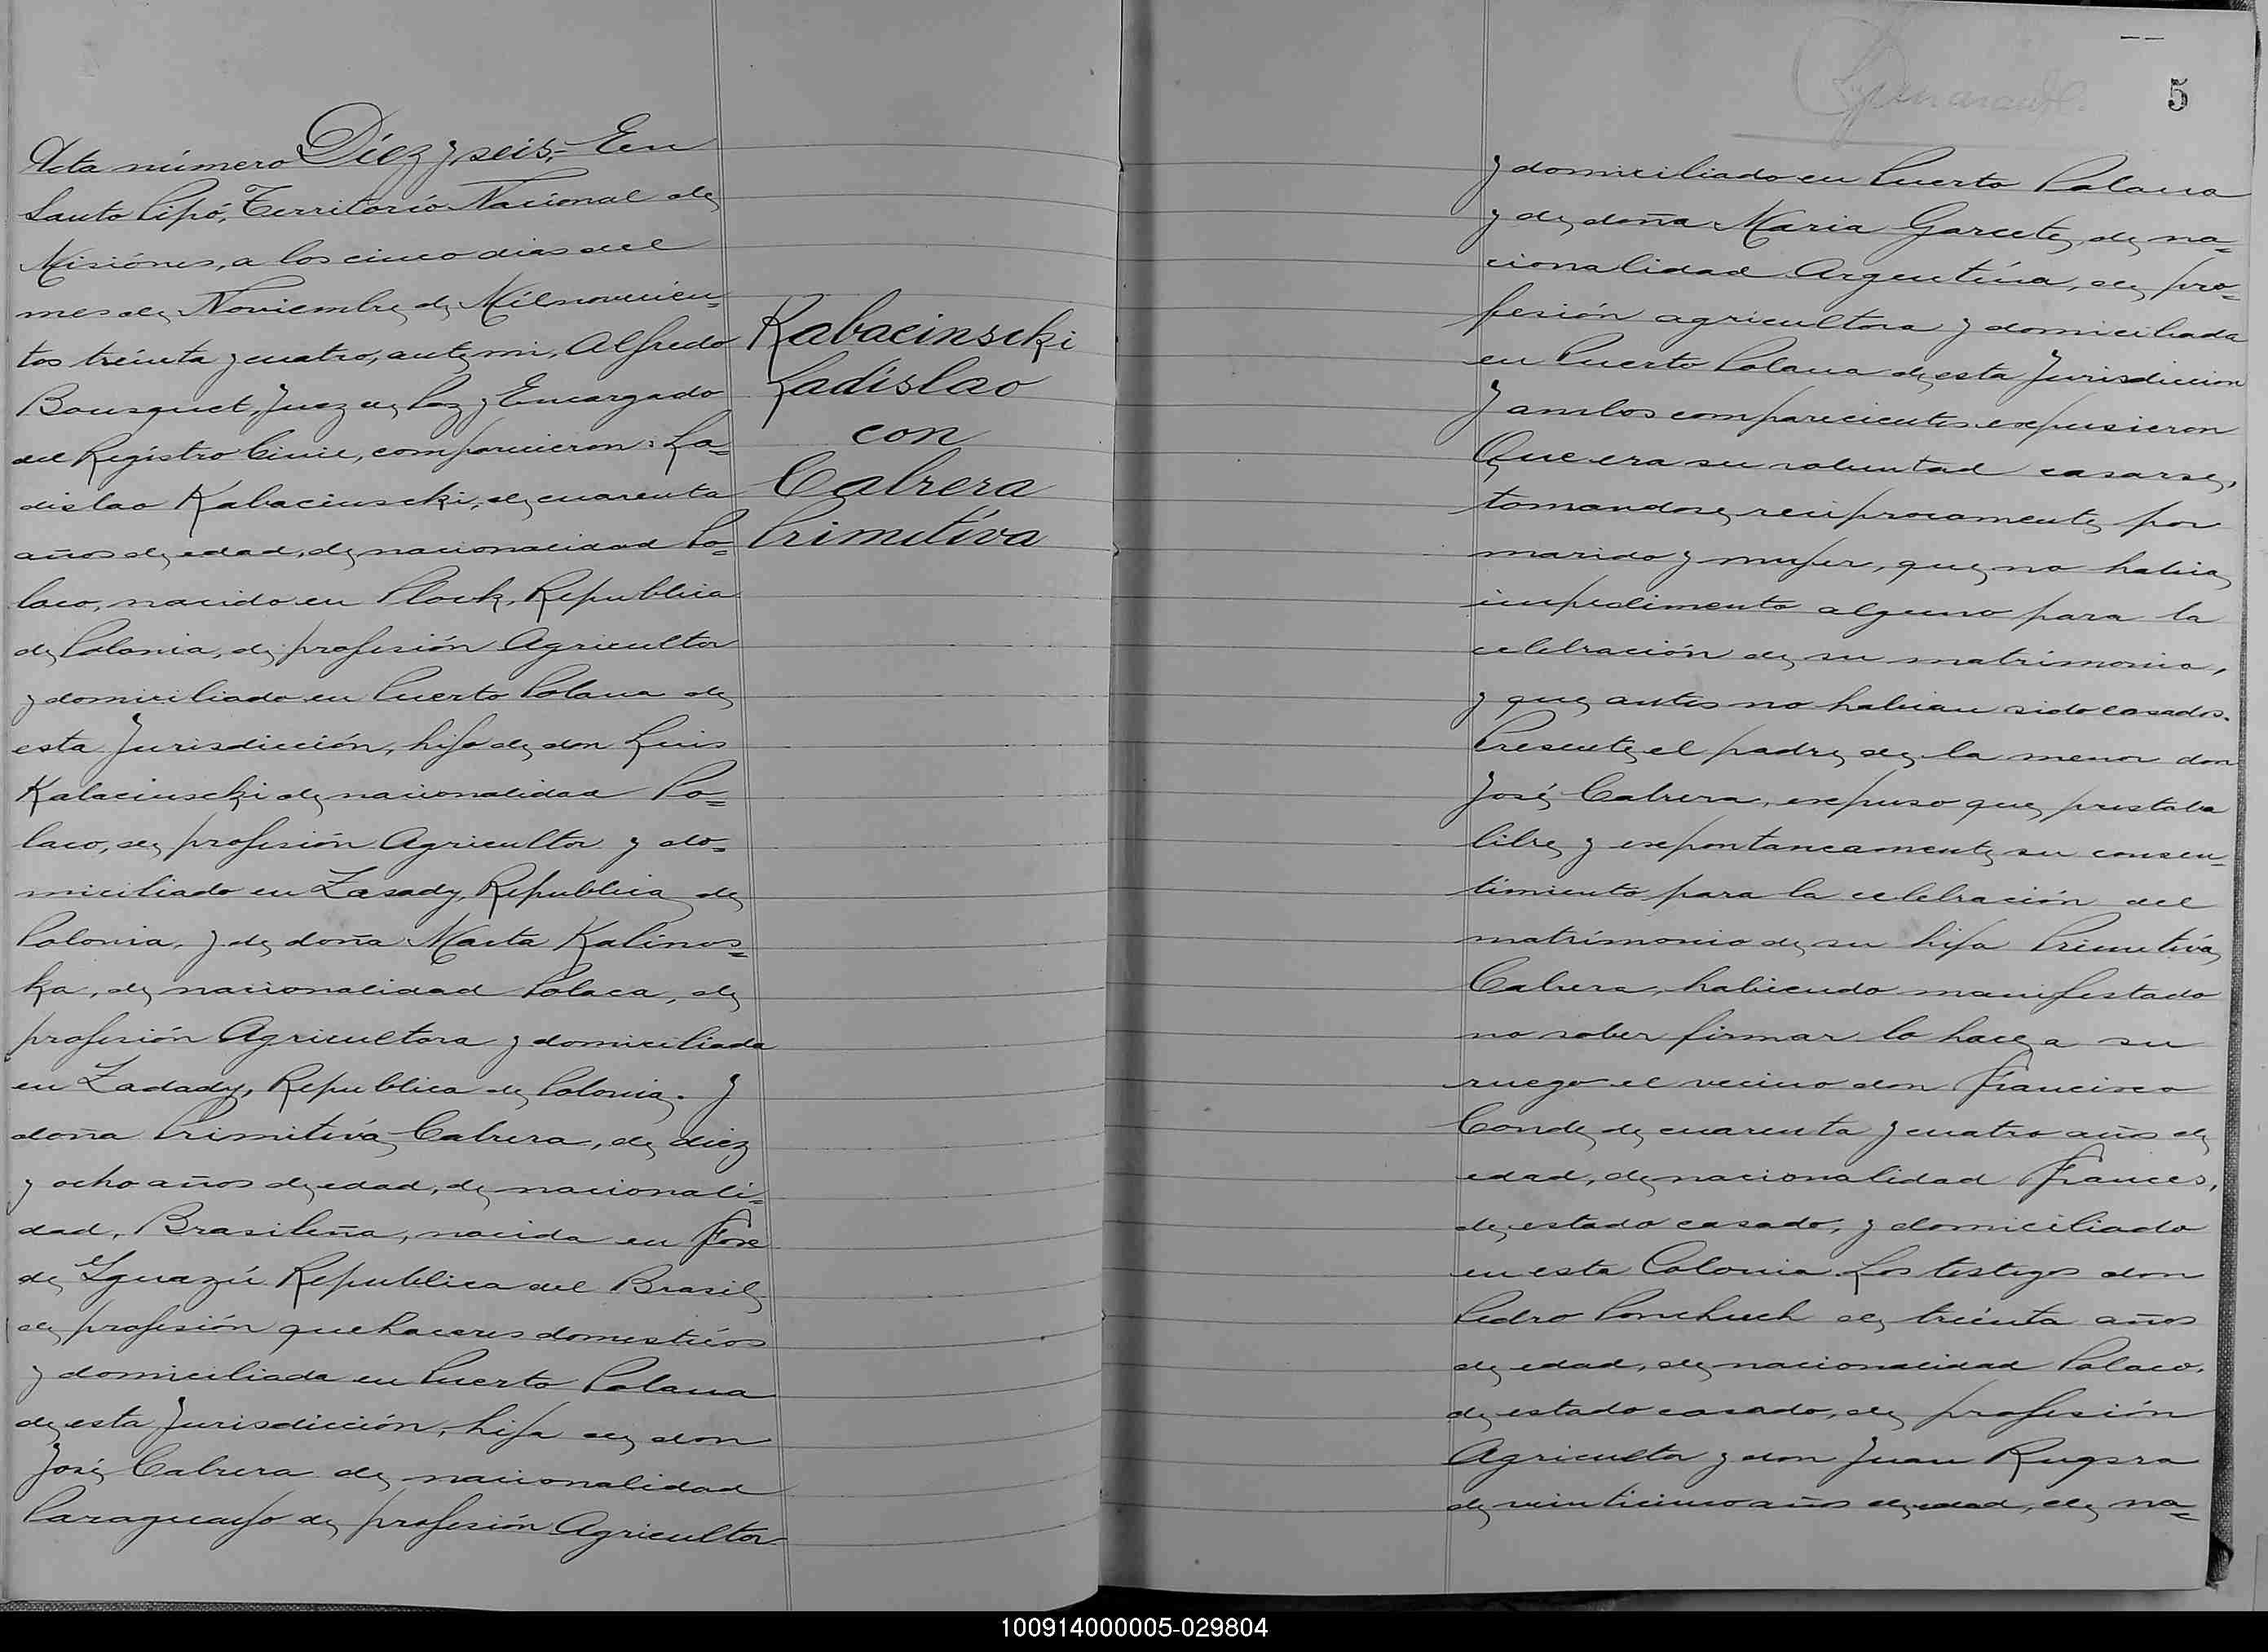 Acta número Diez y seis.- En
Santo Pipó, Territorio Nacional de
Misiónes, a los cinco dias del
mes de Noviembre de Milnovecien=
tos treinta y cuatro, ante mi, Alfredo
Bousquet, Juez de Paz y Encargado
del Registro Civil, comparecieron: La=
dislao Kabacinscki, de cuarenta
años de edad, de nacionalidad Po=
laco, nacido en Plock, Republica
de Polonia, de profesión Agricultor
y domiciliado en Puerto Polana de
esta Jurisdicción, hijo de don Luis
Kabacinscki de nacionalidad Po=
laco, de profesión Agricultor y do=
miciliado en Zasady, Republica de
Polonia, y de doña Marta Kalinos=
ka, de nacionalidad Polaca, de
profesión Agricultora y domiciliada
en Zadady, Republica de Polonia. Y
doña Primitiva Cabrera, de diez
y ocho años de edad, de nacionali=
dad, Brasileña, nacida en Fose
de Yguazú Republica del Brasil,
de profesión quehaceres domesticos
y domiciliada en Puerto Polana
de esta Jurisdicción, hija de don
José Cabrera de nacionalidad
Paraguayo de profesión Agricultor
Kabacinscki
Ladislao
con
Cabrera
Primitiva
5
y domiciliado en Puerto Polana
y de doña Maria Garcete, de na=
cionalidad Argentina, de pro=
fesión agricultora y domiciliada
en Puerto Polana de esta Jurisdiccion
Y ambos comparecientes expusieron
Que era su voluntad casarse,
tomandose reciprocamente por
marido y mujer, que no habia
impedimento alguno para la
celebración de su matrimonio,
y que antes no habian sido casados.
Presente el padre de la menor don
José Cabrera, expuso que prestaba
libre y expontaneamente su consen=
timiento para la celebración del
matrimonio de su hija Primitiva
Cabrera, habiendo manifestado
no saber firmar lo hace a su
ruego el vecino don Francisco
Conde de cuarenta y cuatro años de
edad, de nacionalidad Frances,
de estado casado, y domiciliado
en esta Colonia. Los testigos don
Pedro Ponchuch de treinta años
de edad, de nacionalidad Polaco,
de estado casado, de profesión
Agricultor y don Juan Rugsra
de veinticinco años de edad, de na=
100914000005-029804